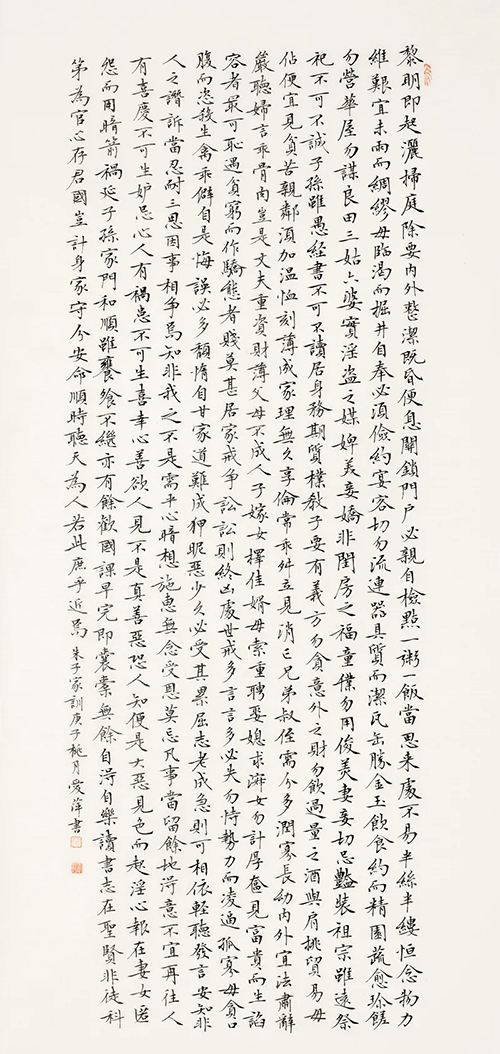 黎明即起灑掃庭除要內外整潔既昏便息關鎖門戶必親自檢點一粥一飯當思来處不易半絲半縷恒念物力
維艱宜未雨而綢繆毋臨渴而掘井自奉必須儉約宴客切勿流連器具質而潔瓦缶勝金玉飲食約而精園蔬愈珍饈
勿營華屋勿謀良田三姑六婆實淫盜之媒婢美妾嬌非閨房之福童僕勿用俊美妻妾切忌豔裝祖宗雖遠祭
祀不可不誠子孫雖愚經書不可不讀居身務期質樸教子要有義方勿貪意外之財勿飲過量之酒與肩挑貿易毋
佔便宜見貧苦親鄰須加温恤刻薄成家理無久享倫常乖舛立見消亡兄弟叔侄需分多潤寡長幼內外宜法肅辭
嚴聽婦言乖骨肉豈是丈夫重資財薄父母不成人子嫁女擇佳婿毋索重聘娶媳求淑女勿計厚奩見富貴而生諂
容者最可恥遇貧窮而作驕態者賤莫甚居家戒爭訟訟則終凶處世戒多言言多必失勿恃勢力而凌逼孤寡毋貪口
腹而恣殺生禽乖僻自是悔誤必多頹惰自甘家道難成狎昵惡少久必受其累屈志老成急則可相依輕聽發言安知非
人之譖訴當忍耐三思因事相爭焉知非我之不是需平心暗想施惠無念受恩莫忘凡事當留餘地得意不宜再往人
有喜慶不可生妒忌心人有禍患不可生喜幸心善欲人見不是真善惡恐人知便是大惡見色而起淫心報在妻女匿
怨而用暗箭禍延子孫家門和順雖饔飧不繼亦有餘歡國課早完即囊橐無餘自得自樂讀書志在聖賢非徒科
第為官心存君國豈計身家守分安命順時聽天為人若此庶乎近焉 朱子家訓庚子桃月愛萍書